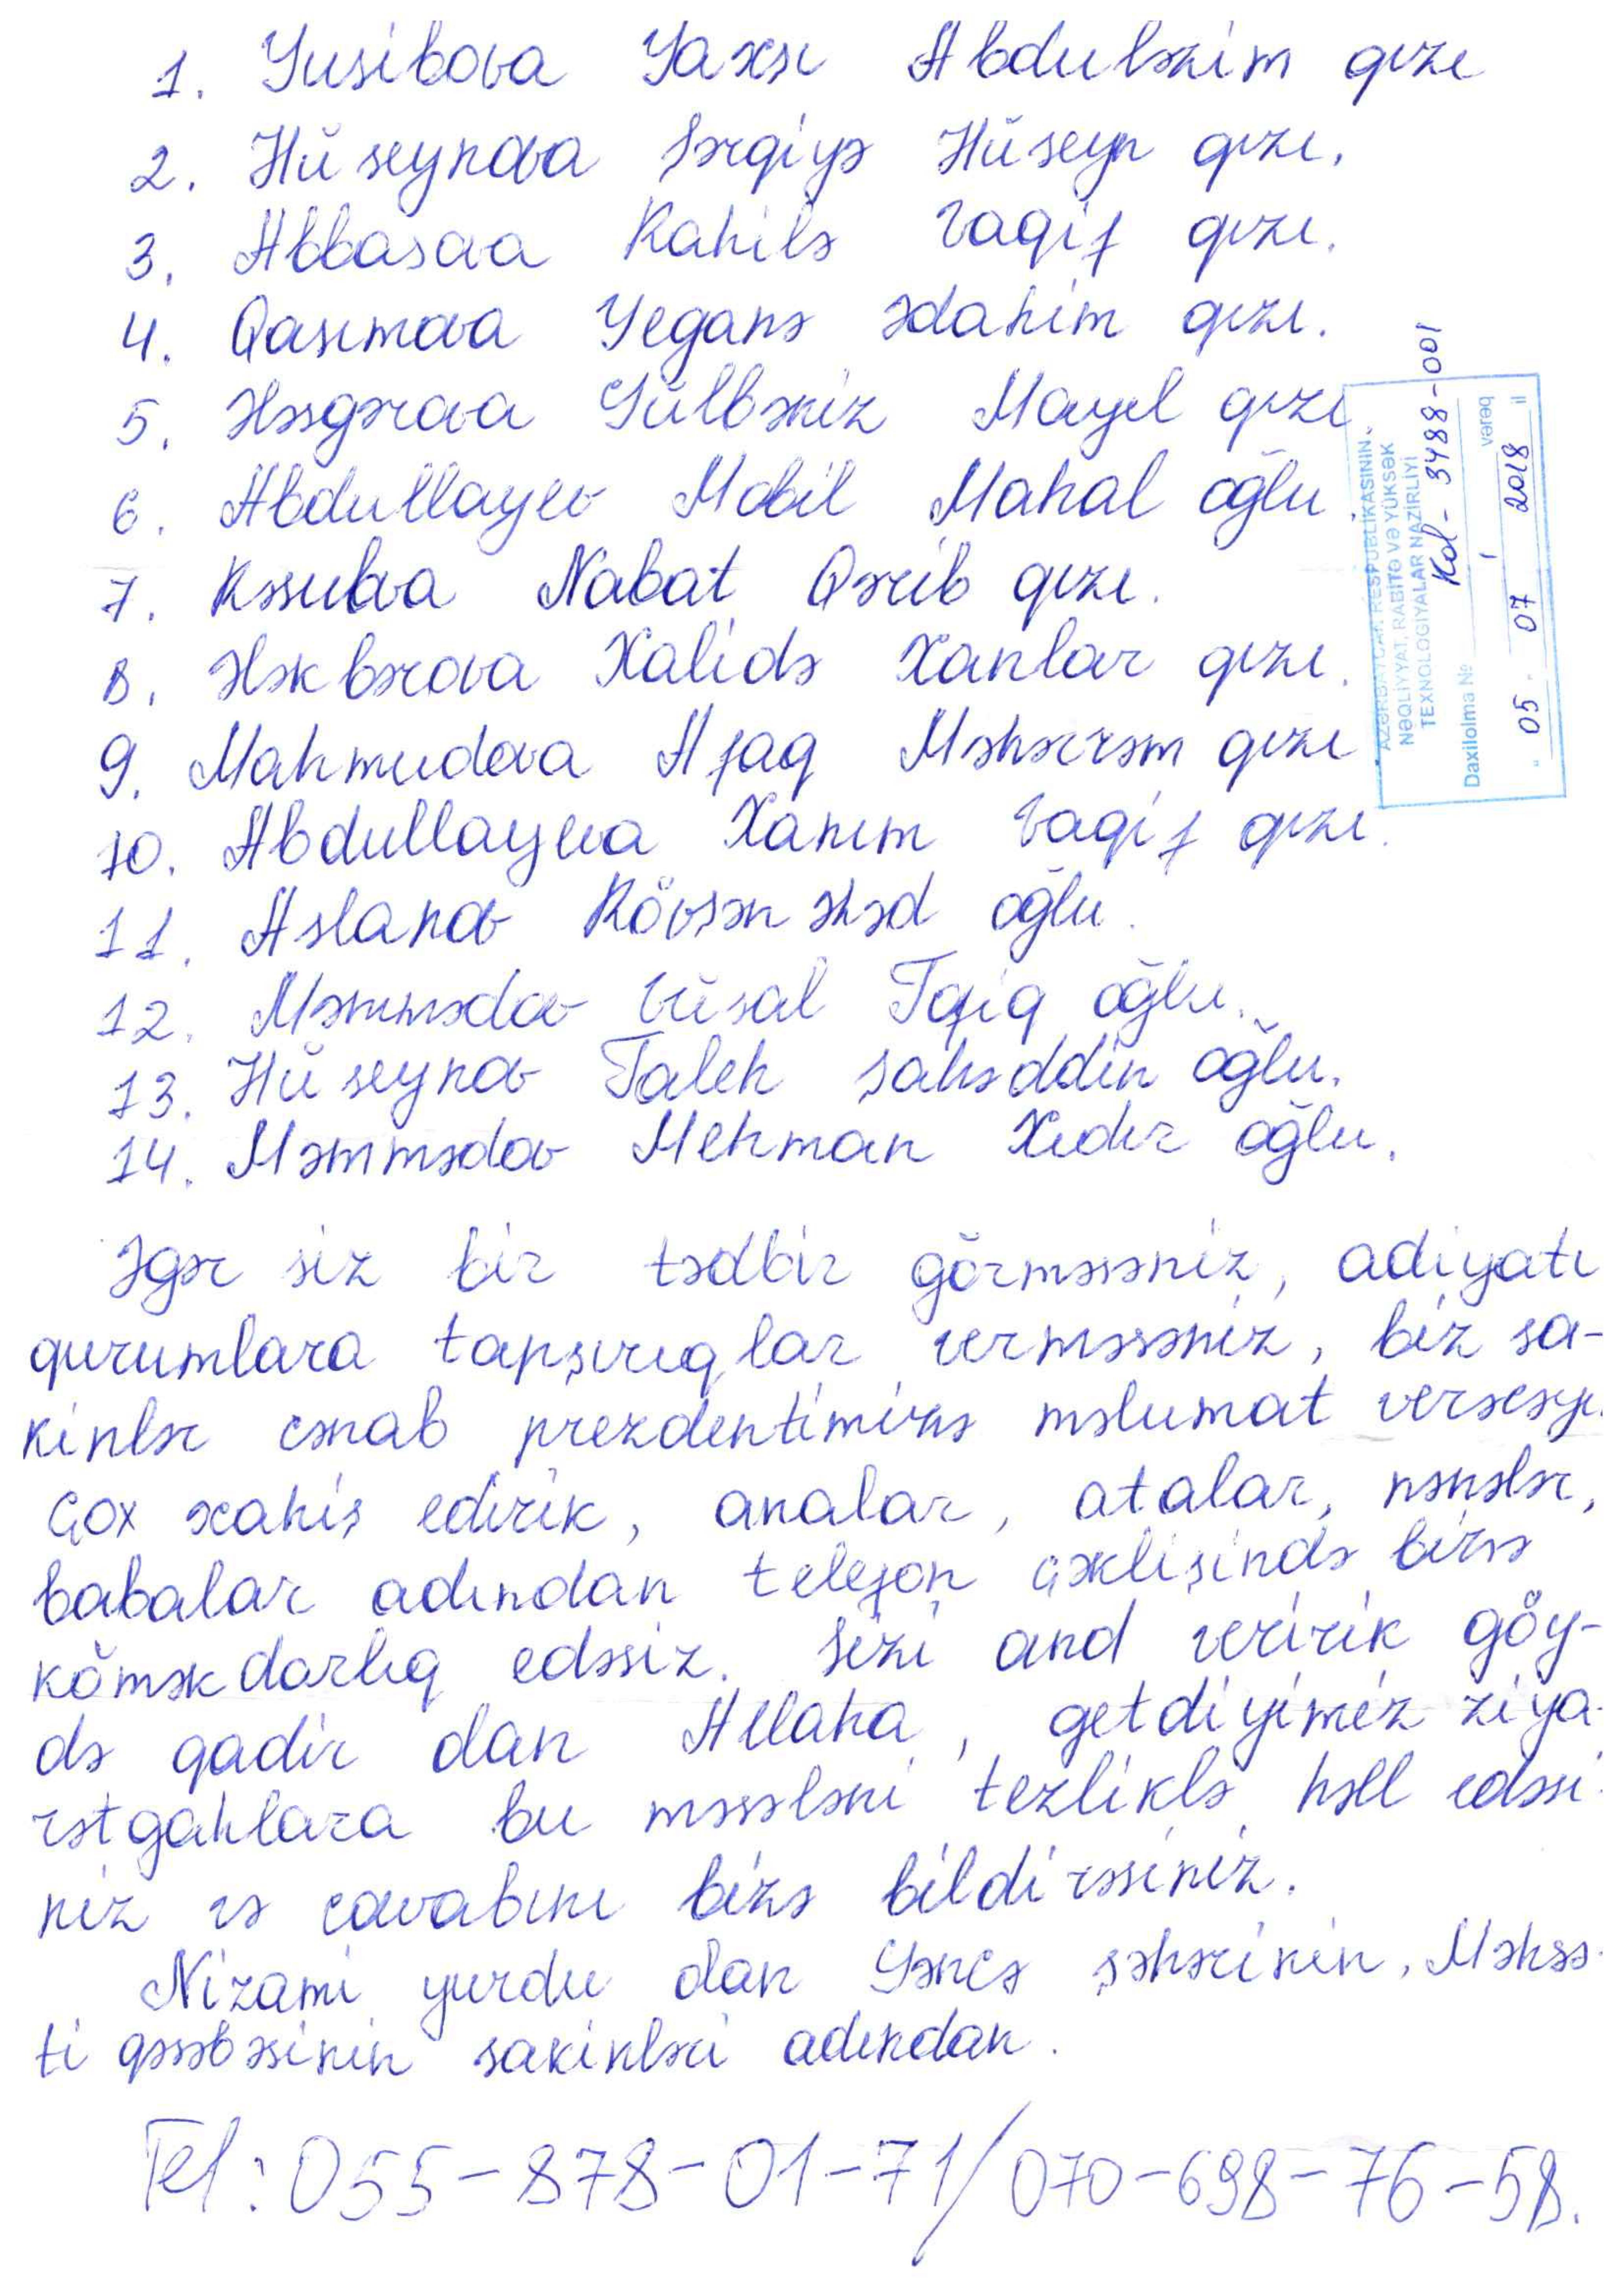 1. Yusibova Yaxşı Abduləzim qızı
2. Hüseynova Şərqiyə Hüseyn qızı.
3. Abbasova Rahilə Vaqif qızı.
4. Qasımova Yeganə Ədahim qızı.
5. Ələsgərova Gülbəniz Mayıl qızı
6. Abdullayev Mobil Mahal oğlu
7. Rəsulova Nabat Qərib qızı.
8. Ələkbərova Xalidə Xanlar qızı.
9. Mahmudova Afaq Məhərrəm qızı
10. Abdullayeva Xanım Vaqif qızı.
11. Aslanov Rövşən Əhəd oğlu.
12. Məmmədov Vüsal Tofiq oğlu.
13. Hüseynov Taleh Şahəddin oğlu.
14. Məmmədov Mehman Xıdır oğlu.
AZƏRBAYCAN RESPUBLİKASININ
NƏQLİYYAT, RABİTƏ VƏ YÜKSƏK
TEXNOLOGİYALAR NAZİRLİYİ
Kol - 3488-001
Daxilolma № 1 vərəq
" 05 " 07 2018 il
Əgər siz bir tədbir görməsəniz, adiyatı
qurumlara tapşırıqlar verməsəniz, biz sa-
kinlər cənab prezdentimizə məlumat verəcəyi.
Çox xahiş edirik, analar, atalar, nənələr,
babalar adından telefon çəklişində bizə
köməkdarlıq edəsiz. Sizi and veririk göy-
də qadir dan Allaha, getdiyimiz ziya-
rətgahlara bu məsələni tezliklə həll edəsi-
niz və cavabını bizə bildirəsiniz.
Nizami yurdu dan Gəncə şəhərinin, Məhsə-
ti qəsəbəsinin sakinləri adından.
Tel: 055-878-01-71/070-698-76-58.